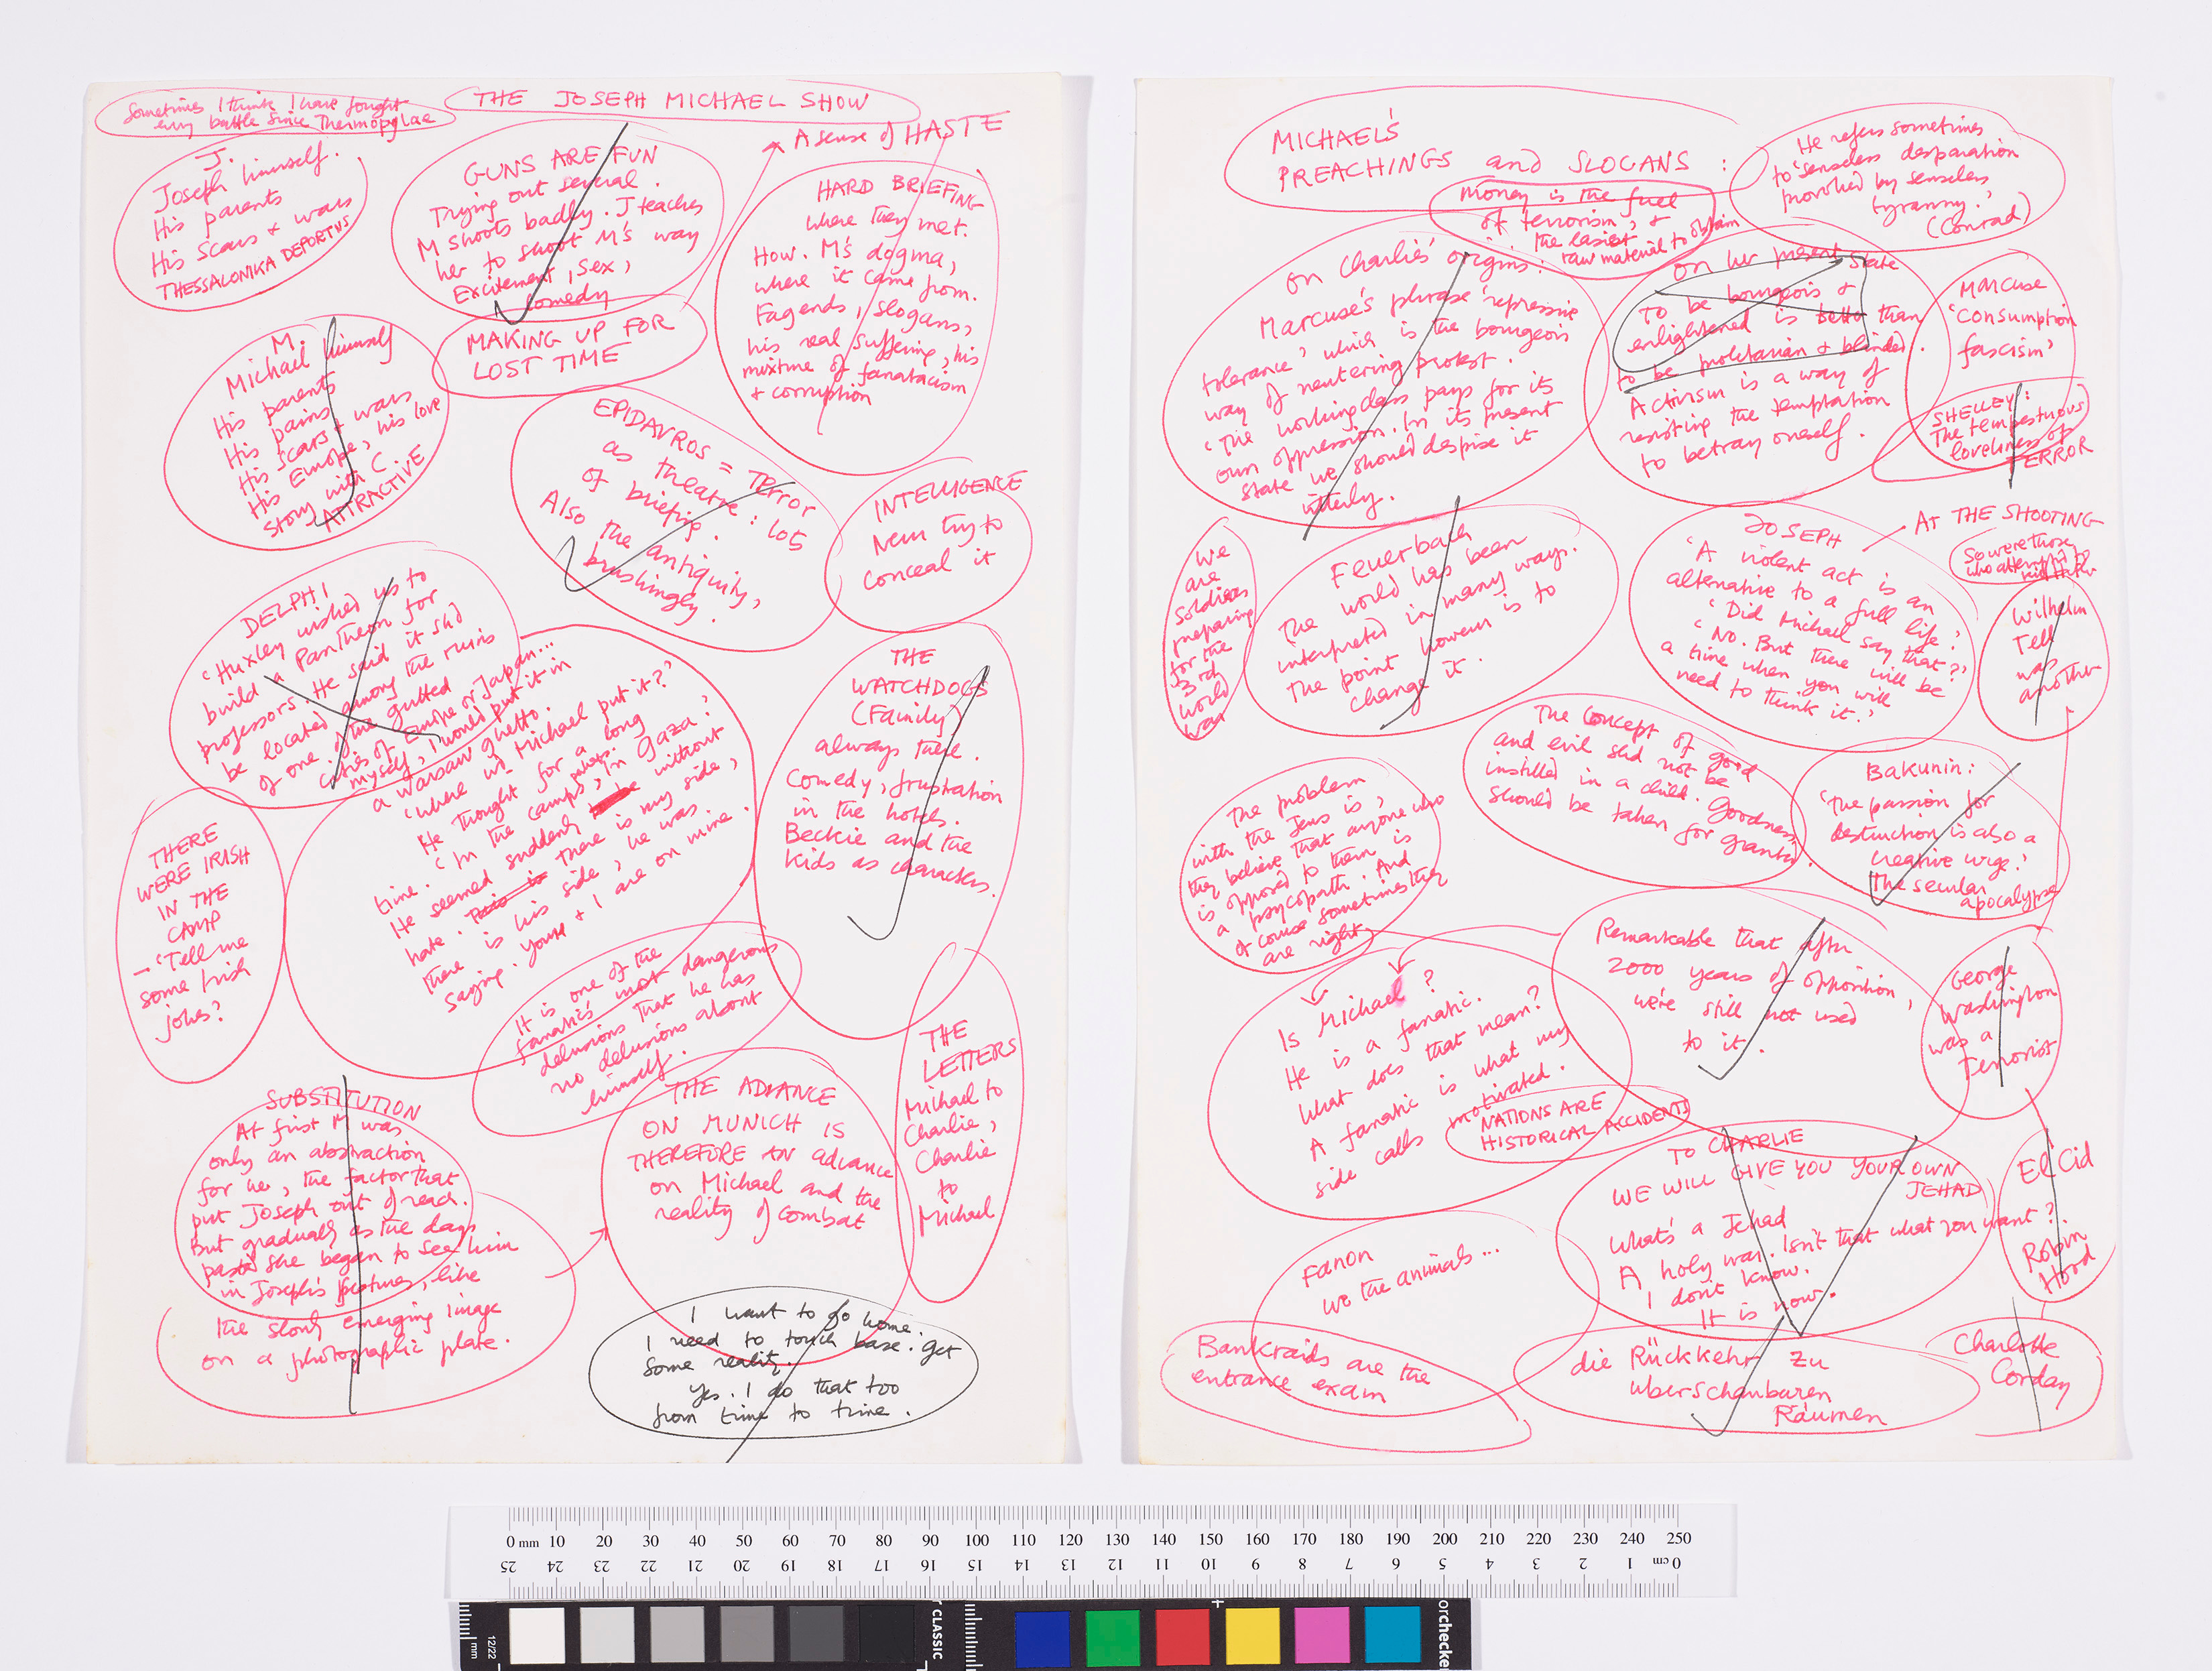 Sometimes I think I have fought
every battle since Thermopylae
THE JOSEPH MICHAEL SHOW
A sense of HASTE
J.
Joseph himself.
His parents
His scars & wars
THESSALONIKA DEPORTNS
GUNS ARE FUN
Trying out several.
M shoots badly. J teaches
her to shoot M's way
Excitement, sex,
comedy
HARD BRIEFING
Where they met.
How. M's dogma,
where it came from.
Fagends, slogans,
his real suffering, his
mixture of fanaticism
& corruption
MAKING UP FOR
LOST TIME
M.
Michael himself
His parents
His pains
His scars & wars
His Europe, his love
story with C
ATTRACTIVE
EPIDAVROS = Terror
as theatre: lots
of briefing.
Also the antiquity,
brushingly.
INTELLIGENCE
Never try to
conceal it
DELPHI
'Huxley wished us to
build a Pantheon for
professors. He said it shd
be located among the ruins
of one of the gutted
cities of Europe or Japan...
myself, I would put it in
a Warsaw ghetto.'
'Where wd Michael put it?'
He thought for a long
time. 'In the camps, perhaps. In Gaza.'
He seemed suddenly to be without
hate. This is there is my side,
there is his side, he was
saying. You & I are on mine.
THE
WATCHDOGS
(Family)
always there.
Comedy, frustration
in the hotels.
Beckie and the
kids as characters.
THERE
WERE IRISH
IN THE
CAMP
– 'Tell me
some Irish
jokes?
It is one of the
fanatic's most dangerous
delusions that he has
no delusions about
himself.
THE
LETTERS
Michael to
Charlie,
Charlie
to
Michael
SUBSTITUTION
At first M was
only an abstraction
for her, the factor that
put Joseph out of reach.
But gradually as the days
passed she began to see him
in Joseph's features, like
the slowly emerging image
on a photographic plate.
THE ADVANCE
ON MUNICH IS
THEREFORE AN advance
on Michael and the
reality of combat
I want to go home.
I need to touch base. Get
some reality.
Yes. I do that too
from time to time.
MICHAEL'S
PREACHINGS and SLOGANS :
He refers sometimes
to 'senseless desparation
provoked by senseless
tyranny.'
(Conrad)
Money is the fuel
of terrorism, &
the easiest
raw material to obtain
On Charlie's origins:
Marcuse's phrase 'repressive
tolerance' which is the bourgeois
way of neutering protest.
'The working class pays for its
own oppression. In its present
state we should despise it
utterly.
On her present state
To be bourgeois &
enlightened is better than
to be proletarian & blinded.
Activism is a way of
resisting the temptation
to betray oneself.
Marcuse
'consumption
fascism'
SHELLEY:
The tempestuous
loveliness of
TERROR
We
are
soldiers
preparing
for the
3rd
World
War
Feuerbach
The world has been
interpreted in many ways.
The point however is to
change it.
JOSEPH
AT THE SHOOTING
'A violent act is an
alternative to a full life.'
'Did Michael say that?'
'No. But there will be
a time when you will
need to think it.'
So were those
who attempted to
kill Hitler
Wilhelm
Tell
was
another
The concept of good
and evil shd not be
instilled in a child. Goodness
should be taken for granted.
Bakunin:
'The passion for
destruction is also a
creative urge.'
The secular
apocalypse
The problem
with the Jews is,
they believe that anyone who
is opposed to them is
a psycopath. And
of course sometimes they
are right
Remarkable that after
2000 years of opposition,
we're still not used
to it.
George
Washington
was a
Terrorist
Is Michael?
He is a fanatic.
What does that mean?
A fanatic is what my
side calls motivated.
NATIONS ARE
HISTORICAL ACCIDENTS
TO CHARLIE
WE WILL GIVE YOU YOUR OWN
JEHAD
What's a Jehad
A holy war. Isn't that what you want?
I don't know.
It is now.
El Cid
Robin
Hood
Fanon
We the animals...
Bankraids are the
entrance exam
die Rückkehr zu
uberschaubaren
Räumen
Charlotte
Corday
0 mm 10 20 30 40 50 60 70 80 90 100 110 120 130 140 150 160 170 180 190 200 210 220 230 240 250
25 24 23 22 21 20 19 18 17 16 15 14 13 12 11 10 9 8 7 6 5 4 3 2 1 0 cm
12/22
mm
CLASSIC
orchecke